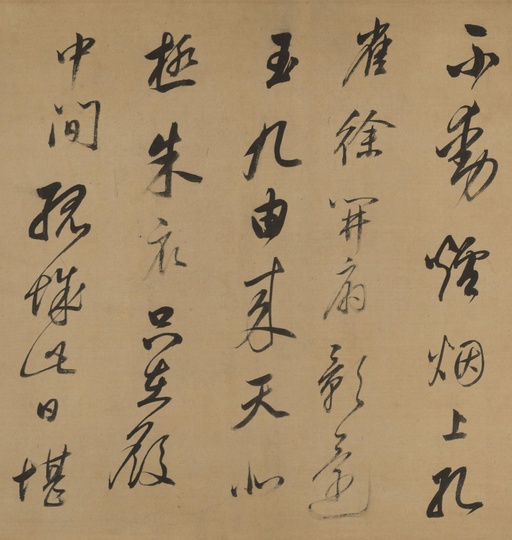 不動爐烟上孔
雀徐開扇影還
玉几由來天北
極朱衣只在殿
中間孤城此日堪